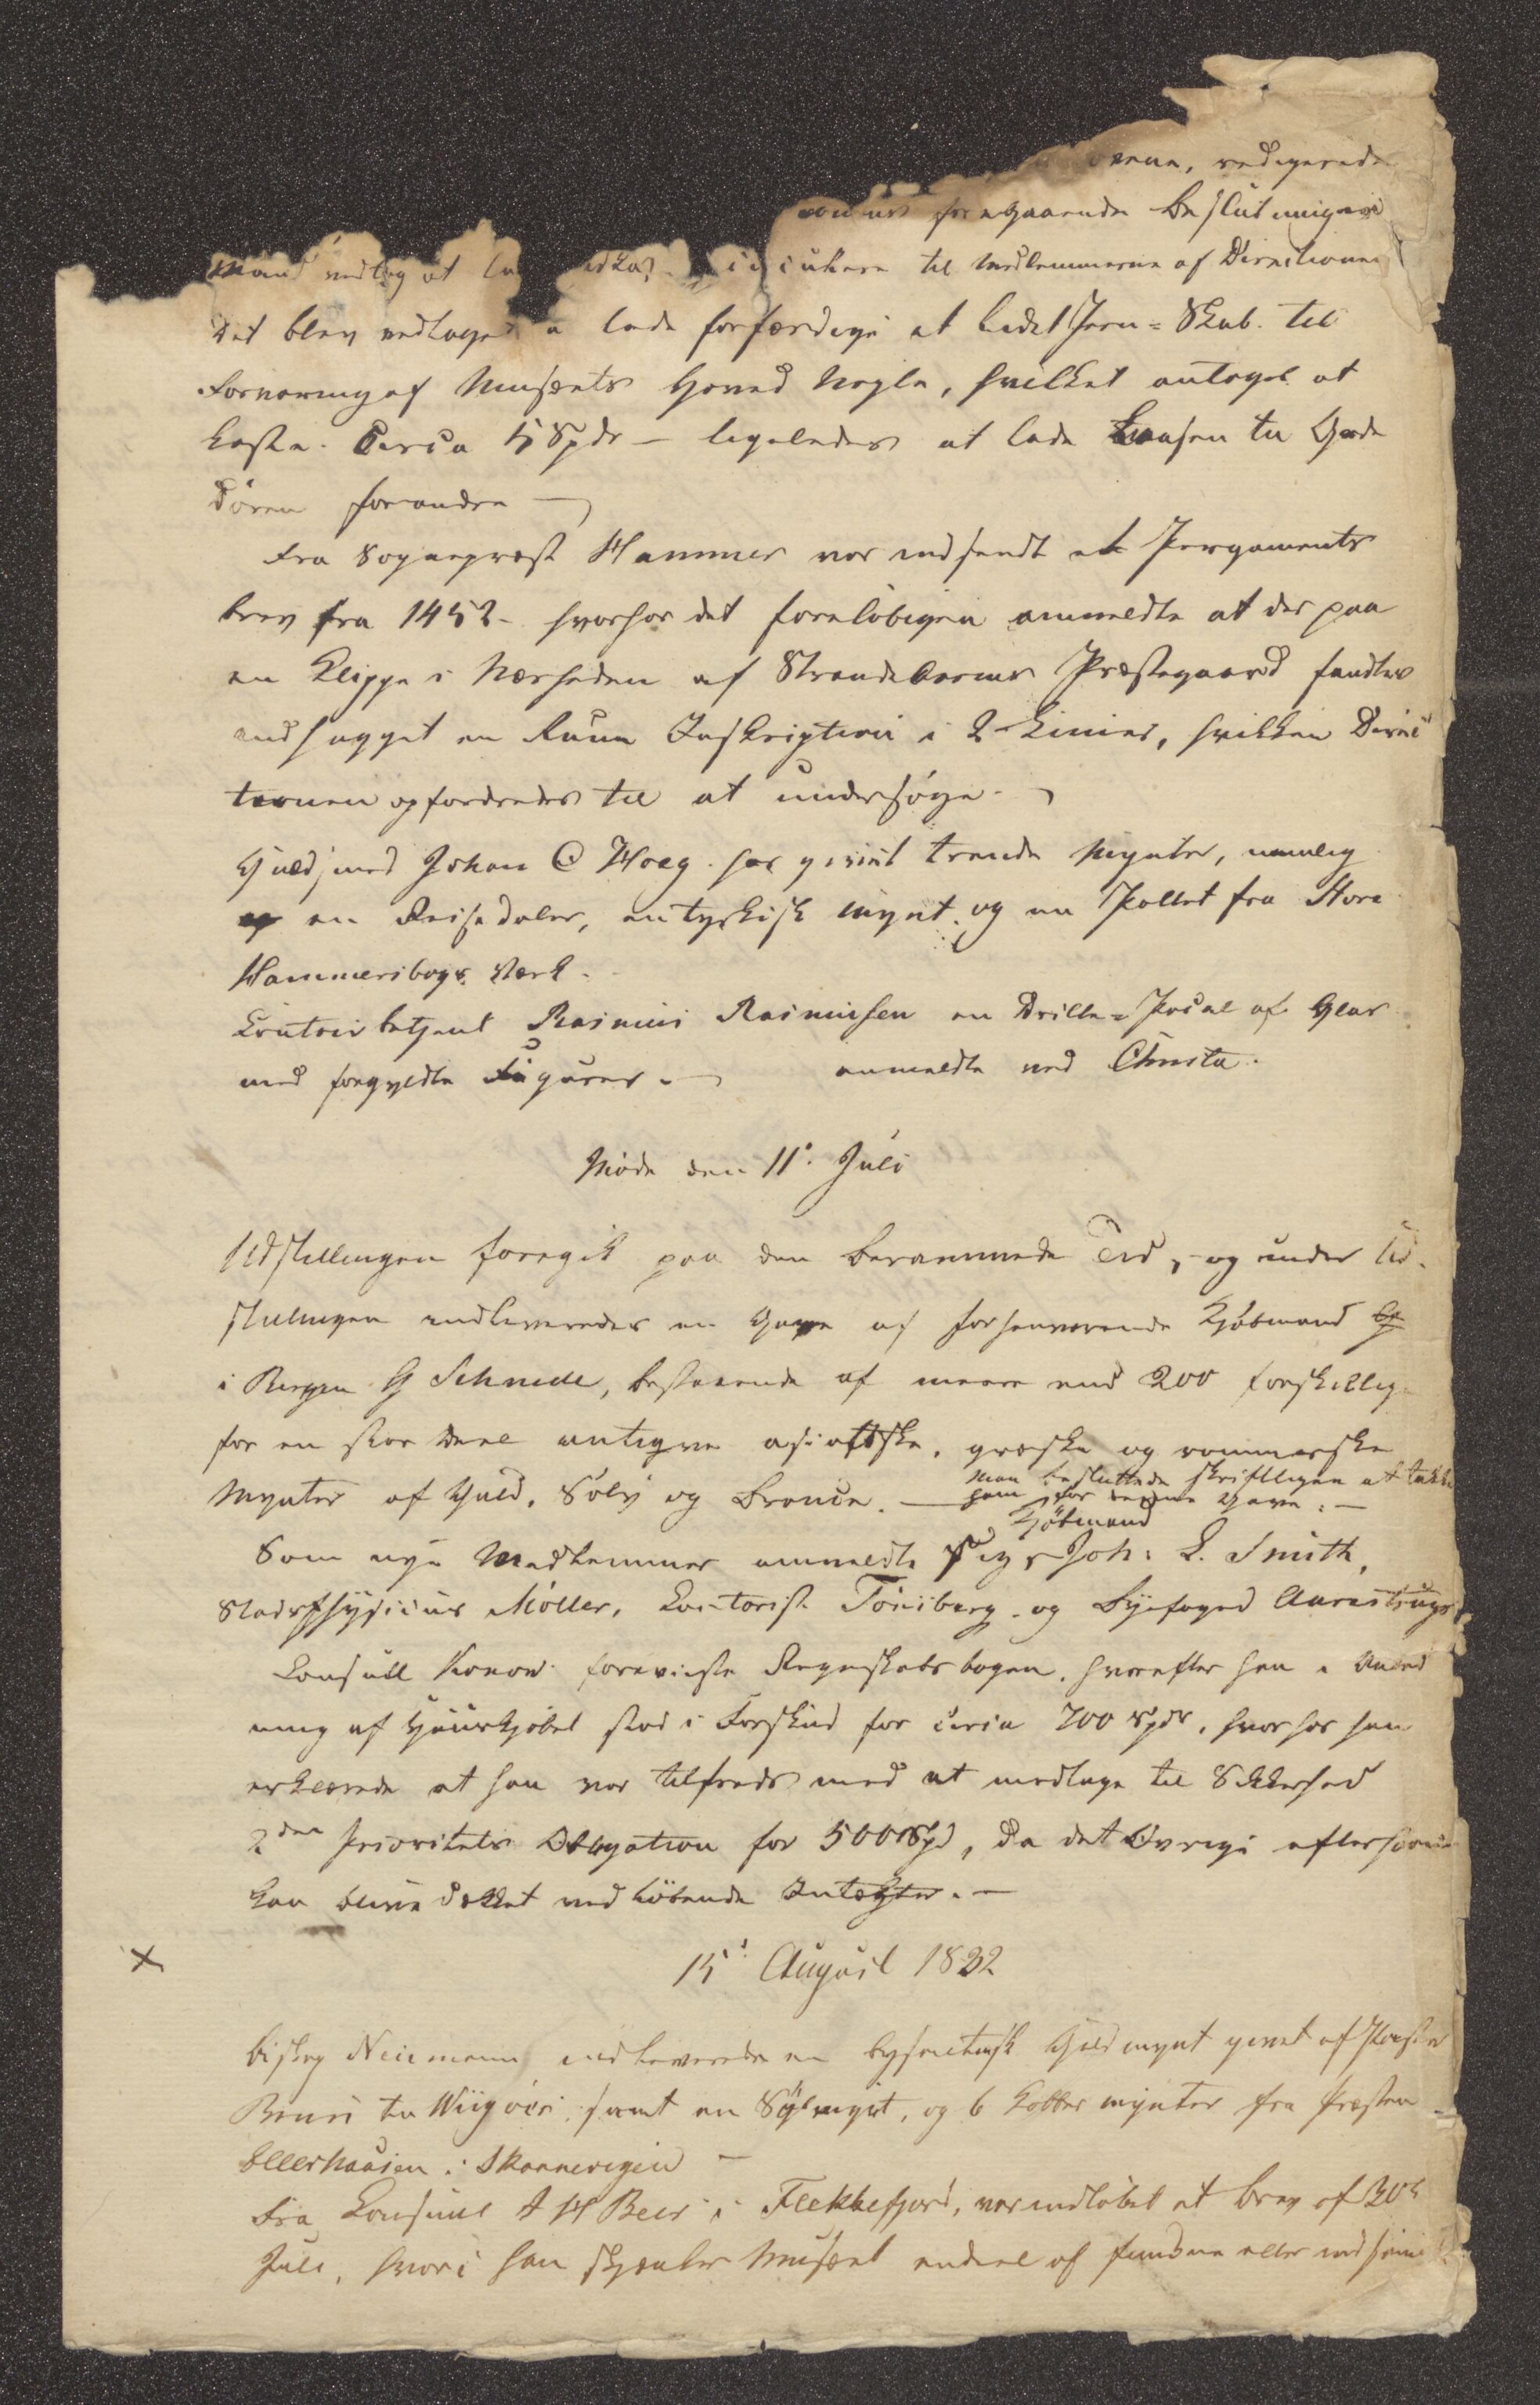 redigerede
foregaaende Beslutninger
Mand vedtog at Circulere til Medlemmerne af Directionen
Det blev vedtaget a lade forfærdige et lidet Jern-Skab til
Forvaring af Musæets Hoved Nøgle, hvilket antoges at
koste Circa 5 Spdr – ligeledes at lade Laasen til Gade
Døren forandre —
Fra Sognepræst Hammer var indsendt et Pergaments
brev fra 1452 – hvorhos det foreløbigen anmeldte at der paa
en Klippe i Nærheden af Strandebarms Præstegaard fandtes
indhugget en Rune Inskription i 2 Linier, hvilken Direc
tionen opfordredes til at undersøge. –
Guldsmed Johan C Hoeg har givet trende Mynter, nemlig
en Reisedaler, en tyrkisk Mynt og en Pollet fra Store
Hammersbogs Værk.
Contoirbetjent Rasmus Rasmussen en Drikke-Pocal af Glas
med forgyldte Figurer. — anmeldte ved Christie.
Møde den 11. Juli
Udstillingen foregik paa den berammede Tid, og under Ud-
stillingen indleveredes en Gave af forhenværende Kjøbmand
i Bergen G Schnelle, bestaaende af meere end 200 forskellig
for en stor Deel antique asiatiske, græske og rommerske
Mynter af Guld, Sølv og Bronce. — Man besluttede skriftligen at takke
ham for denne Gave. —
Kjøbmand
Som nye Medlemmer anmeldte sig Joh: L. Smith,
Stadsphysicus Møller, Contorist Tönsberg og Byefoged Aarestrup
Consull Konow foreviiste Regnskabsbogen, hvorefter han i Anled
ning af Huuskjøbet stod i Forskud for circa 700 Spdr, hvorhos han
erklærede at han var tilfreds med at modtage til Sikkerhed
2den Prioritets Obligation for 500 Spd, da det Øvrige efterhaanden
kan blive dækket ved løbende Intægter. —
x 15. August 1832
Biskop Neumann indleverede en bysantinsk Guldmynt givet af Præsten
Bruun til Wiigøer, samt en Sølvmynt, og 6 Kobber mynter fra Præsten
Ellerhausen i Skonnevigen —
Fra Consul A H Beer i Flekkefjord, var indløbet et brev af 30te
Juli, hvori han skjænker Musæet endeel af fundne eller